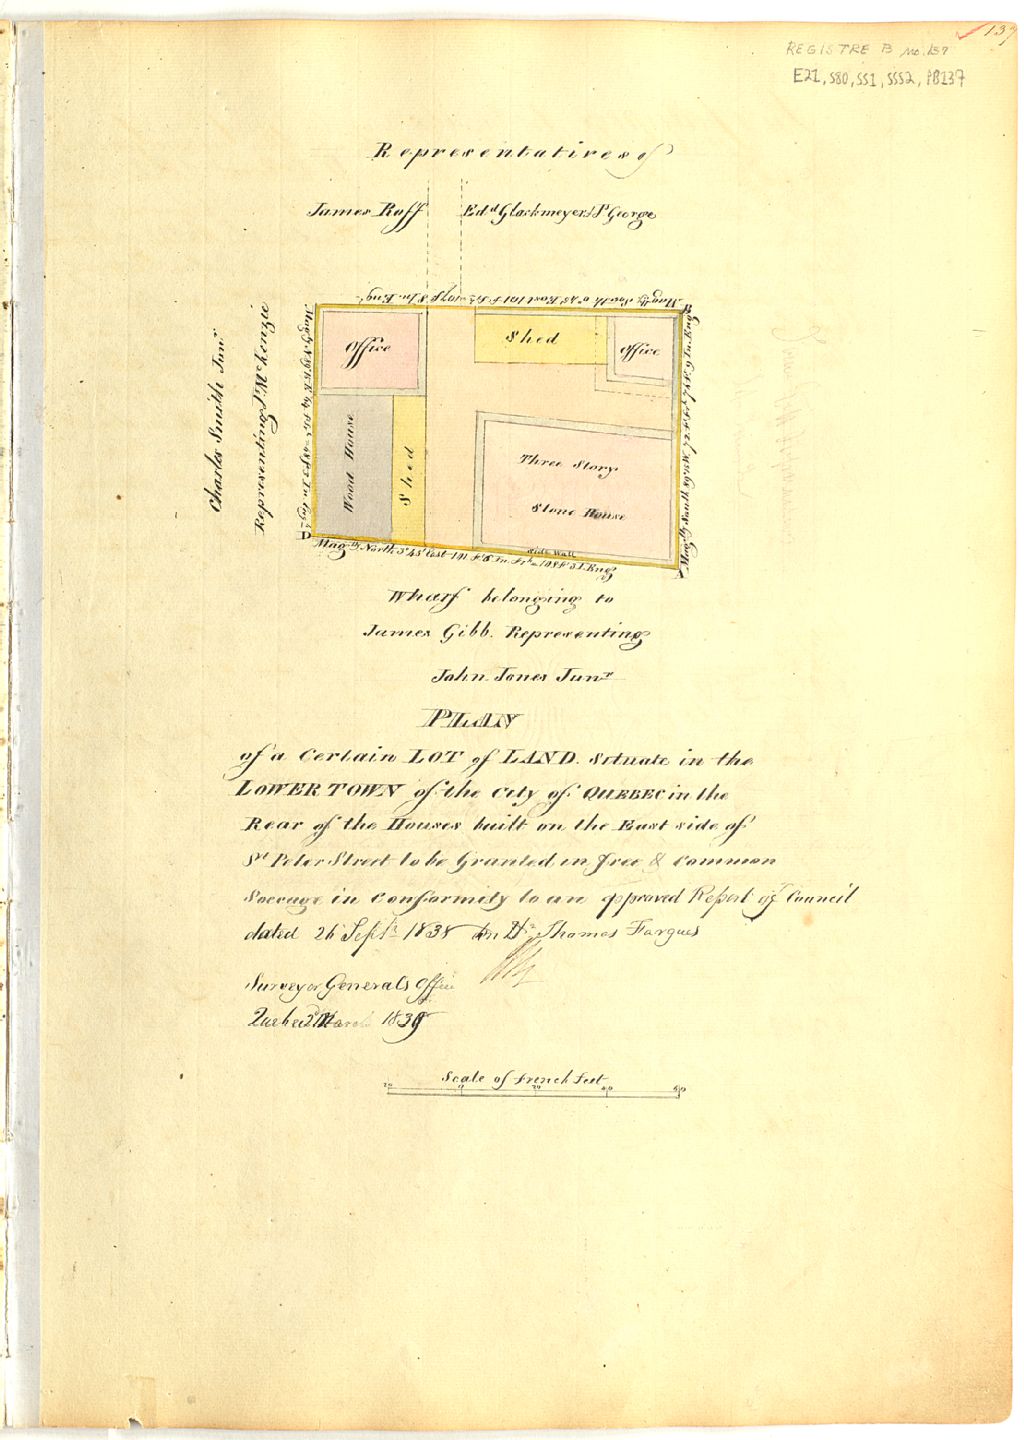 137
REGISTRE B No. 137
E21, S80, SS1, SSS2, PB137
Representatives of
James Roff
Edd Glackmeyer & Pr George
Magly South 0°45' East 101 F Fr = 107 F 8 In. Eng
Charles Smith Junr
Representing Js McKenzie
Office
Shed
Office
Wood House
Shed
Three Story
Stone House
Side Wall
D
B
A
Magly North 3°45' West 101 F 6 In. Fr = 108 F 3 I. Eng
Wharf belonging to
James Gibb. Representing
John Jones Junr
PLAN
of a Certain LOT of LAND. Situate in the
LOWER TOWN of the City of QUEBEC in the
Rear of the Houses built on the East side of
St Peter Street to be Granted in free & Common
Soccage in Conformity to an approved Report of Council
dated 26 Septr 1838 to Dr Thomas Fargues
Surveyor Generals Office
Quebec March 1839
Scale of French Feet
20 0 20 40 60